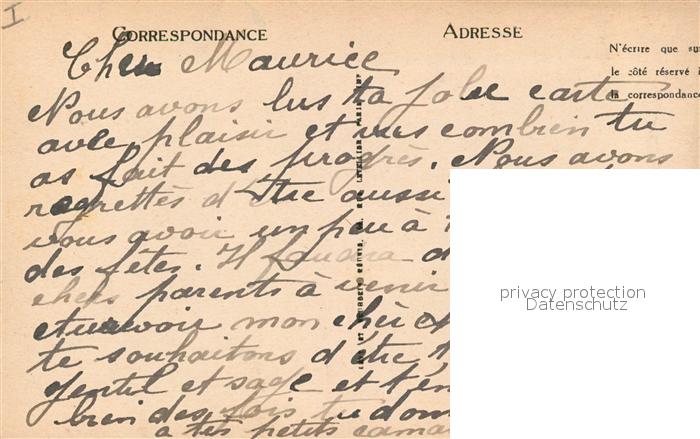 I
CORRESPONDANCE
ADRESSE
N'écrire que sur
le côté réservé à
la correspondance
Cher Maurice
Nous avons lus ta jolie carte
avec plaisir et vus combien tu
as fait des progrès. Nous avons
regrettés d'être aussi
vous avoir un peu à
des fêtes. Il faudra
chers parents à venir
mon chér
te souhaitons d'être
gentil et sage et t'en
bien des fois tu
à tes petits
privacy protection
Datenschutz